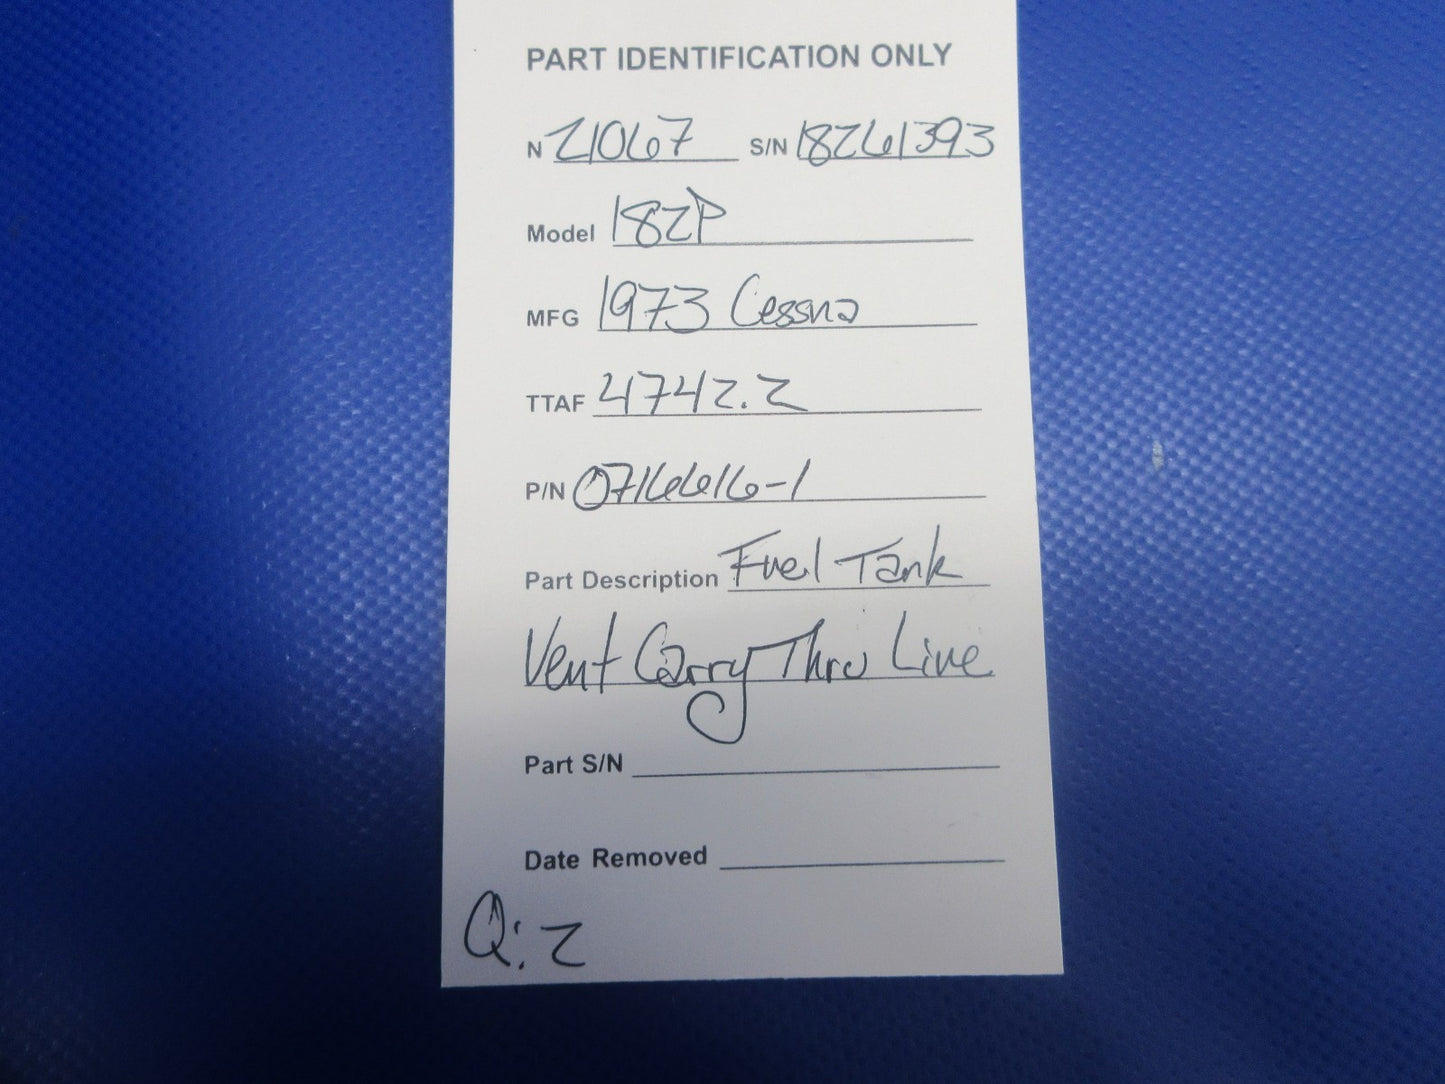 PART IDENTIFICATION ONLY
N 21067 S/N 18261393
Model 182P
MFG 1973 Cessna
TTAF 4742.2
P/N 0716616-1
Part Description Fuel Tank
Vent Carry Thru Line
Part S/N
Date Removed
Q: 2